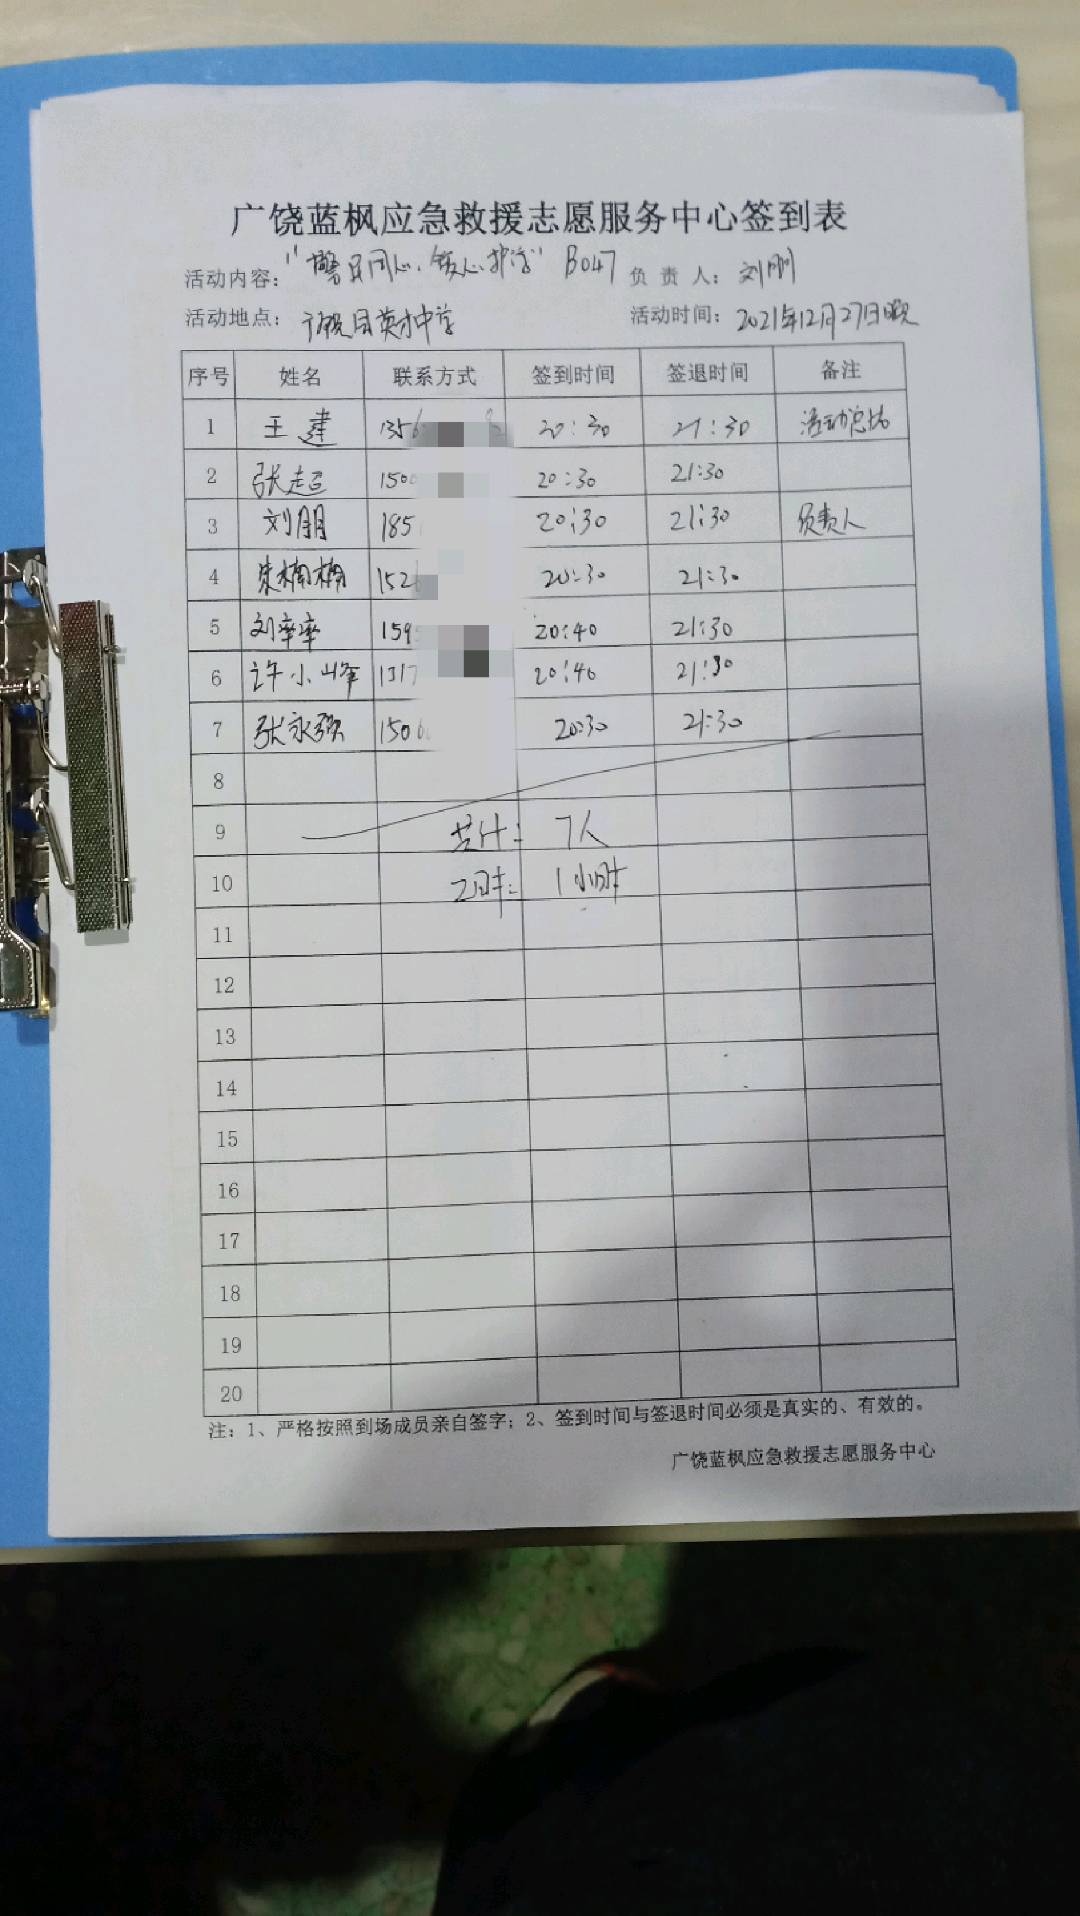 广饶蓝枫应急救援志愿服务中心签到表
活动内容："警民同心、筑心护学" B047 负责人：刘刚
活动地点：英才中学 活动时间：2021年12月27日晚
序号 姓名 联系方式 签到时间 签退时间 备注
1 王建 1356 20:30 21:30 活动总结
2 张超 150 20:30 21:30
3 刘朋 185 20:30 21:30 负责人
4 朱楠楠 152 20:30 21:30
5 刘牵牵 159 20:40 21:30
6 许小峰 1317 20:40 21:30
7 张永强 1506 20:30 21:30
8
9 共计：7人
10 工时：1小时
11
12
13
14
15
16
17
18
19
20
注：1、严格按照到场成员亲自签字；2、签到时间与签退时间必须是真实的、有效的。
广饶蓝枫应急救援志愿服务中心